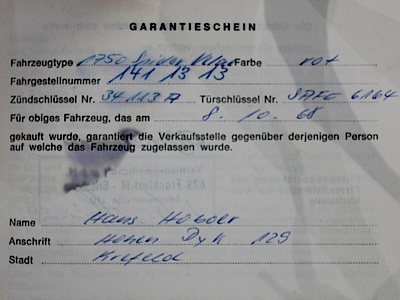 GARANTIESCHEIN
Fahrzeugtype 1750 Spider Veloce Farbe rot
Fahrgestellnummer 141 13 13
Zündschlüssel Nr. 34113 A Türschlüssel Nr. SAFE 6164
Für obiges Fahrzeug, das am 8. 10. 68
gekauft wurde, garantiert die Verkaufsstelle gegenüber derjenigen Person
auf welche das Fahrzeug zugelassen wurde.
Name Hans
Anschrift Hohen Dyk 129
Stadt Krefeld